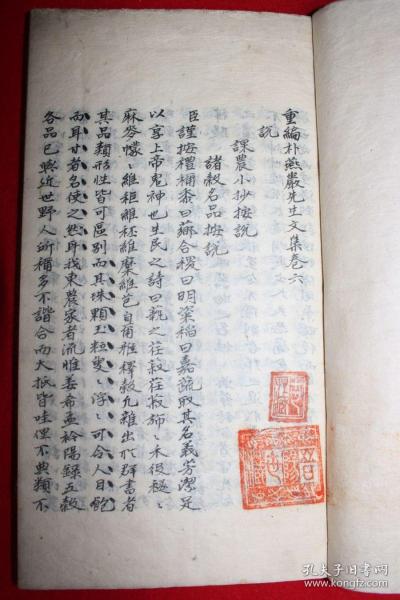 重編朴燕巖先生文集卷六
說
課農小抄按說
諸穀名品按說
臣謹按禮稱黍曰薌合稷曰明粢稻曰嘉蔬取其名義芳潔足
以享上帝鬼神也生民之詩曰蓺之荏菽荏菽旆〻禾役穟〻
麻麥幪〻維秬維秠維穈維芑自爾雅釋穀凡雜出於群書者
其品類形性皆可區別而其珠顆玉粒雯〻浮〻可令人目飽
而耳甘者名使之然耳我東農家者流惟姜希孟衿陽錄五穀
各品已與近世野人所稱多不諧合而大抵皆哇俚不典類不
孔夫子旧书网
www.kongfz.com